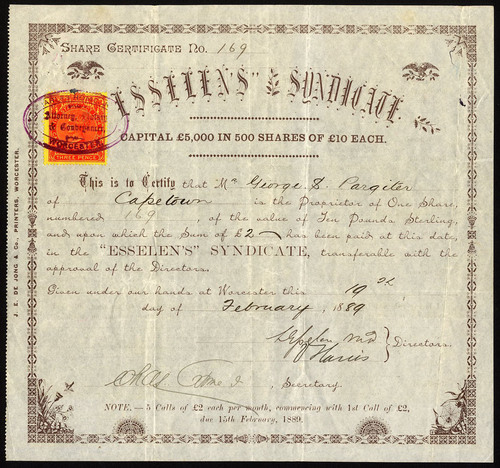 SHARE CERTIFICATE NO. 169
"ESSELEN'S" SYNDICATE.
CAPITAL £5,000 IN 500 SHARES OF £10 EACH.
Attorney, Notary
& Conveyancer
WORCESTER
THREE PENCE
This is to Certify that Mr George S. Pargiter
of Capetown is the Proprietor of One Share,
numbered 169, of the value of Ten Pounds Sterling,
and upon which the Sum of £2 has been paid at this date,
in the "ESSELEN'S" SYNDICATE, transferable with the
approval of the Directors.
Given under our hands at Worcester this 19th
day of February, 1889
Esselen MD
Harris
Directors.
Chas, Secretary
NOTE.—5 Calls of £2 each per month, commencing with 1st Call of £2,
due 15th February, 1889.
J. E. DE JONG & Co., PRINTERS, WORCESTER.